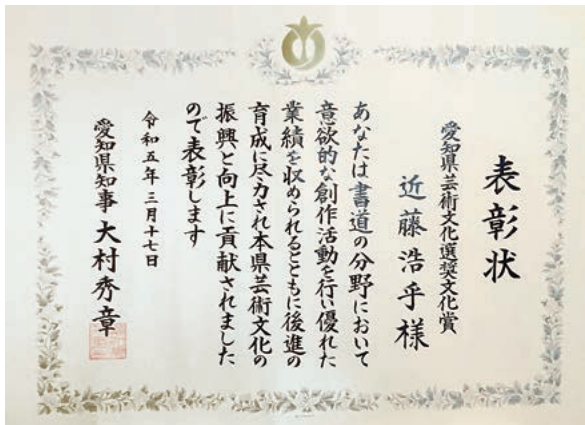 表彰状
愛知県芸術文化選奨文化賞
近藤浩乎様
あなたは書道の分野において
意欲的な創作活動を行い優れた
業績を収められるとともに後進の
育成に尽力され本県芸術文化の
振興と向上に貢献されました
ので表彰します
令和五年三月十七日
愛知県知事 大村秀章